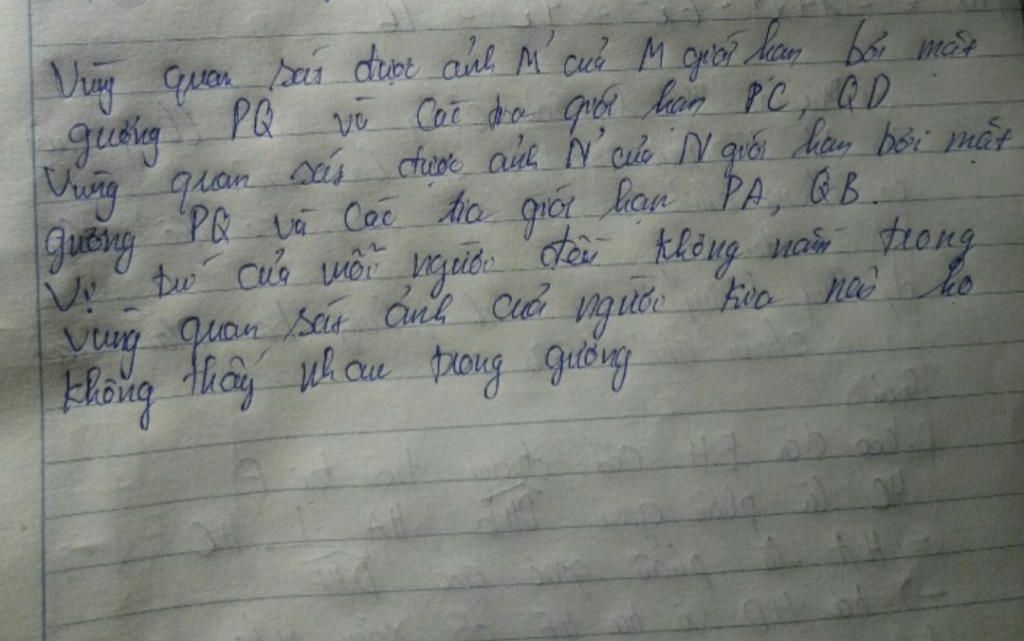 Vùng quan sát được ảnh M' của M giới hạn bởi mặt
gương PQ và các tia giới hạn PC, QD
Vùng quan sát được ảnh N' của N giới hạn bởi mặt
gương PQ và các tia giới hạn PA, QB.
Vị trí của mỗi người đều không nằm trong
vùng quan sát ảnh của người kia nên họ
không thấy nhau trong gương